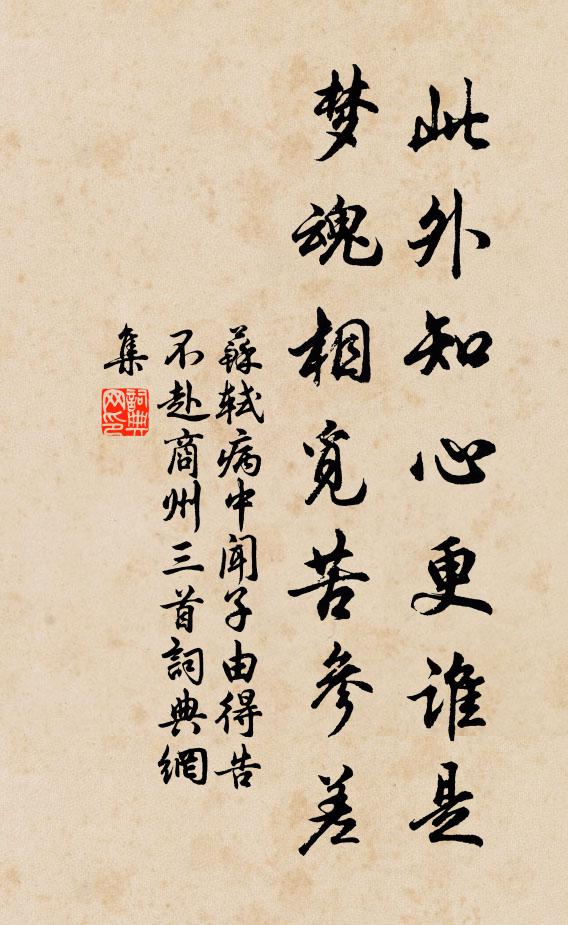 此外知心更谁是
梦魂相觅苦参差
蘇轼病中闻子由得告
不赴商州三首詞典網
集
詞典
网印